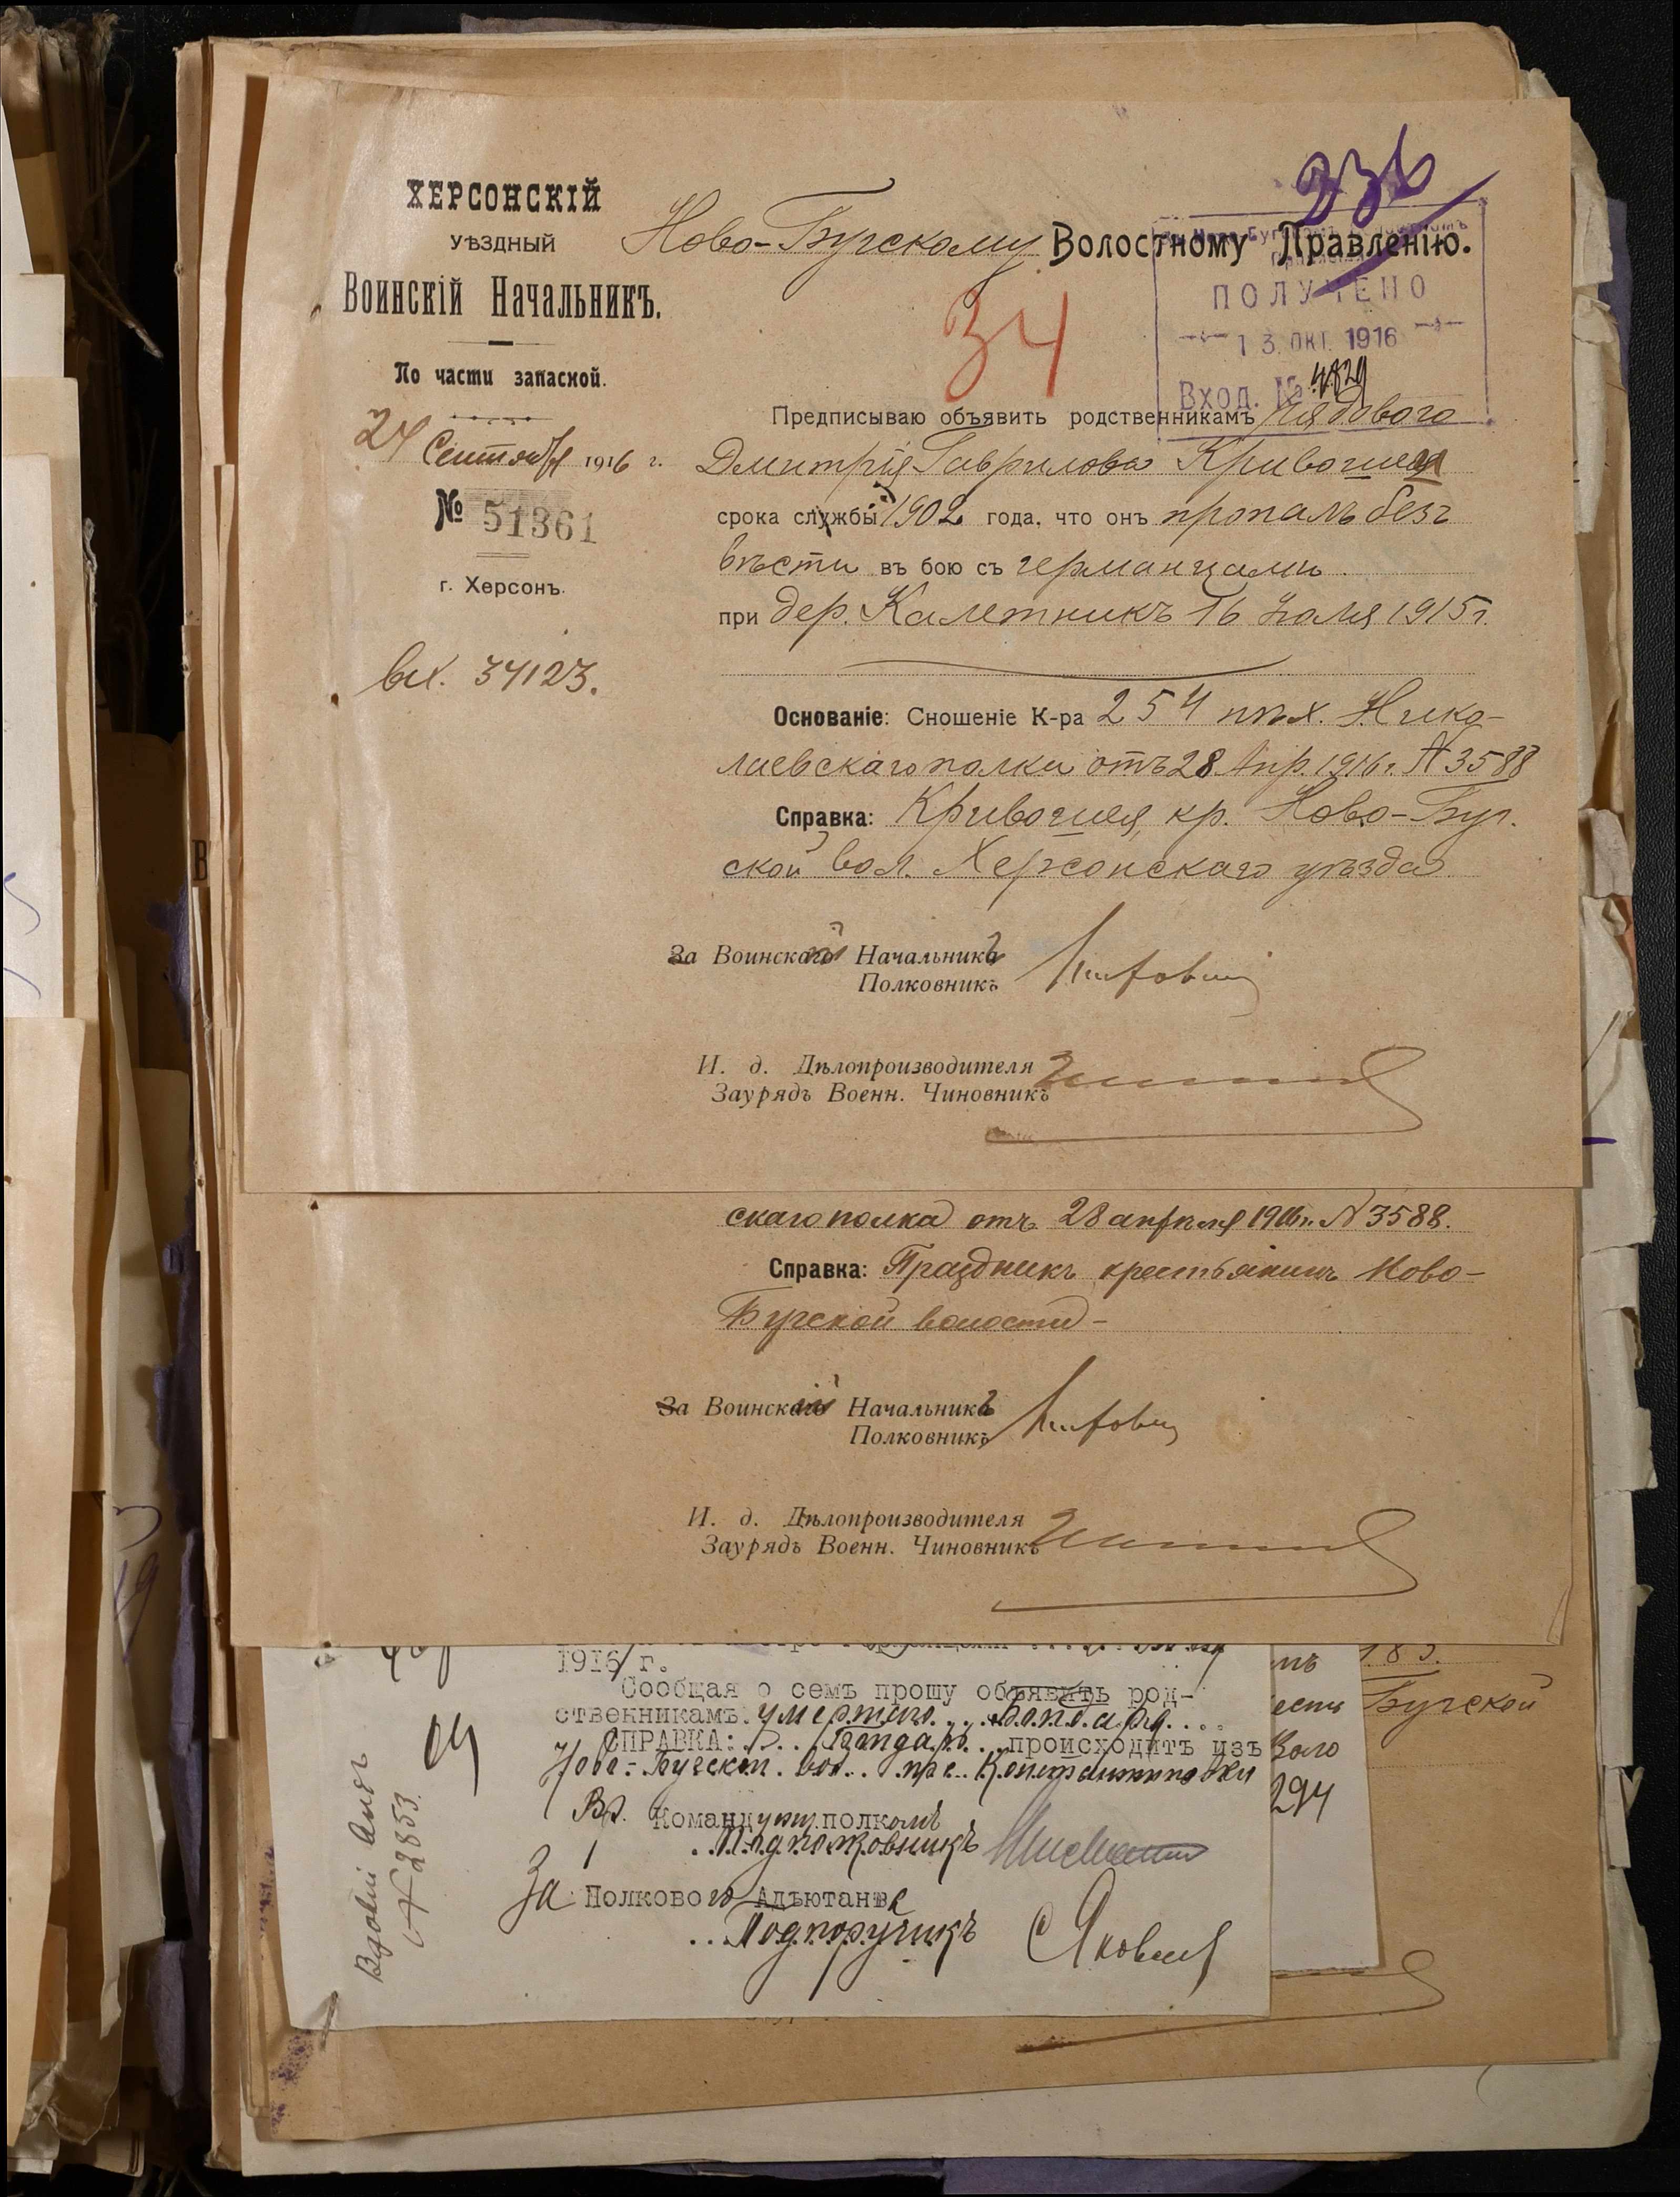 ХЕРСОНСКІЙ
УѢЗДНЫЙ
ВОИНСКІЙ НАЧАЛЬНИКЪ.
По части запасной.
24 Сентября 1916 г.
№ 51361
г. Херсонъ.
вх. 34123.
236
Ново-Бугскому Волостному Правленію.
34
ПОЛУЧЕНО
13. ОКТ. 1916
Вход. №
Предписываю объявить родственникамъ рядового
Дмитрія Гаврилова Кривошея
срока службы 1902 года, что онъ пропалъ безъ
вѣсти въ бою съ германцами
при дер. Калетникъ 16 Іюля 1915 г.
Основаніе: Сношеніе К-ра 254 пѣх. Нико-
лаевскаго полка отъ 28 Апр. 1916 г. № 3588
Справка: Кривошея, кр. Ново-Буг.
ской вол. Херсонскаго уѣзда
За Воинскій Начальникъ
Полковникъ
И. д. Дѣлопроизводителя
Заурядъ Военн. Чиновникъ
скаго полка отъ 28 апрѣля 1916 г. № 3588.
Справка: Праздникъ крестьянинъ Ново-
Бугской волости -
За Воинскій Начальникъ
Полковникъ
И. д. Дѣлопроизводителя
Заурядъ Военн. Чиновникъ
1916 г.
Сообщая о семъ прошу объявить род-
ственникамъ умершаго Бондаря
СПРАВКА: Бондарь происходитъ изъ
Ново-Бугской вол. дер. Константиновки
Вр. Командующ. полкомъ
Подполковникъ
За Полкового Адъютанта
Подпоручикъ
№ 2853.
183.
Бугской
294